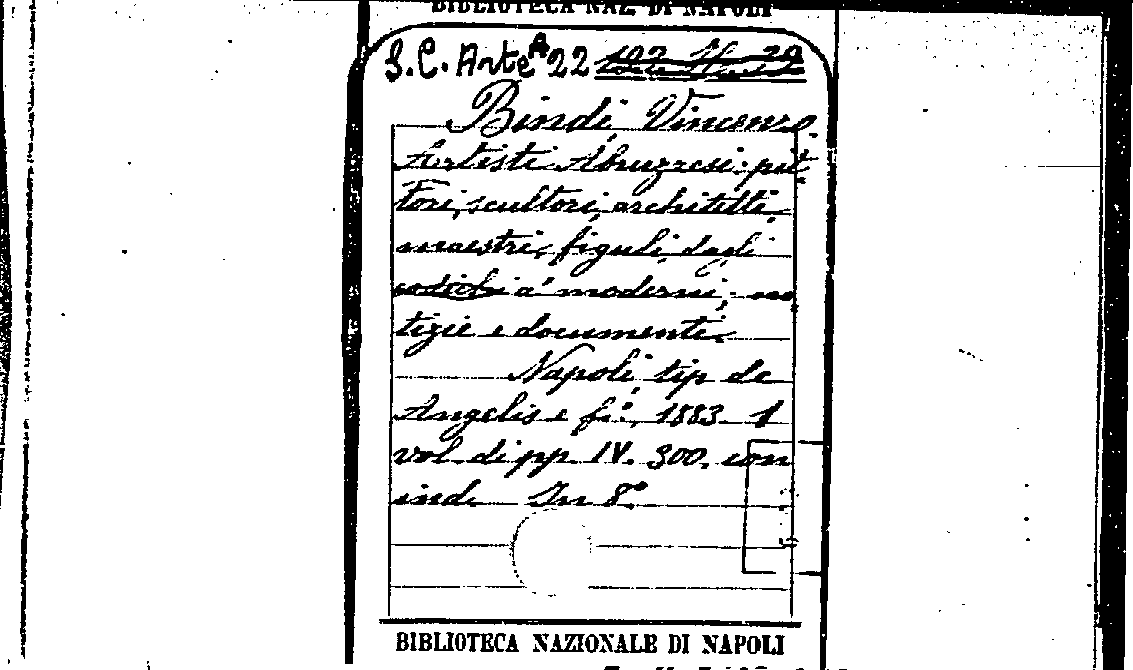 BIBLIOTECA NAZ. DI NAPOLI
S.C. Arte A 22
Bindi, Vincenzo
Artisti Abruzzesi: pit
tori, scultori, architetti,
maestri, figuli, dagli
antichi a' moderni; no
tizie e documenti.
Napoli, tip. de
Angelis e fi.°, 1883. 1
vol. di pp. IV. 300. con
ind. In 8.°
BIBLIOTECA NAZIONALE DI NAPOLI